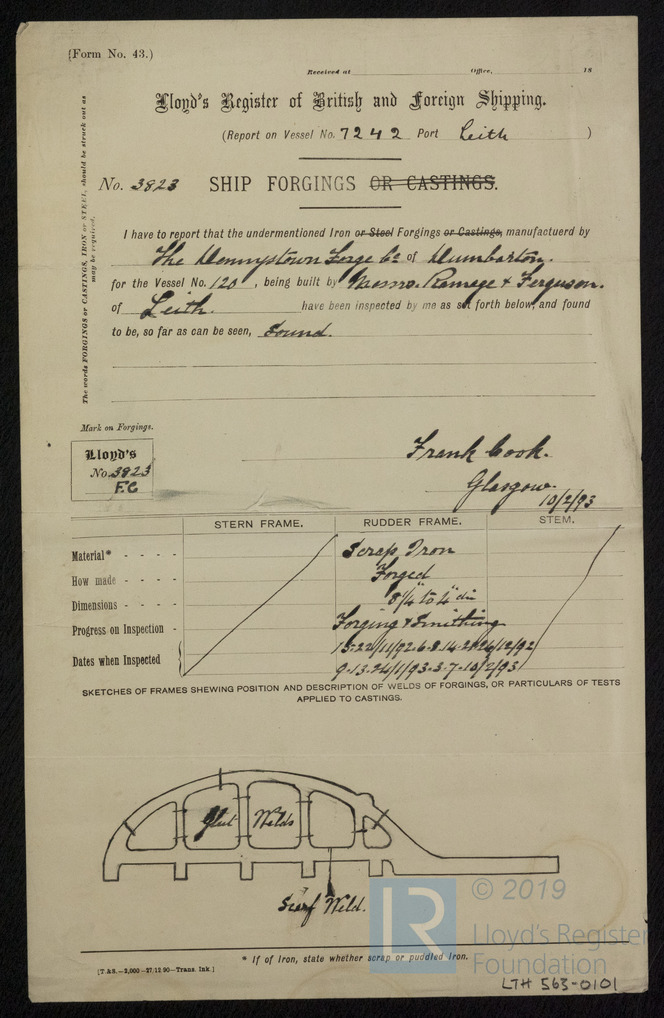 (Form No. 43.)
Received at Office, 18
Lloyd's Register of British and Foreign Shipping.
(Report on Vessel No. 7242 Port Leith )
No. 3823 SHIP FORGINGS OR CASTINGS.
The words FORGINGS or CASTINGS, IRON or STEEL, should be struck out as
may be required.
I have to report that the undermentioned Iron or Steel Forgings or Castings, manufactuerd by
The Dennystown Forge Co of Dumbarton.
for the Vessel No. 120, being built by Messrs. Ramage & Ferguson.
of Leith. have been inspected by me as set forth below, and found
to be, so far as can be seen, Sound.
Mark on Forgings.
Lloyd's
No. 3823
FC
Frank Cook.
Glasgow.
10/2/93
STERN FRAME. RUDDER FRAME. STEM.
Material* - - - - Scrap Iron
How made - - - - Forged
Dimensions - - - - 8¼" to 4" dia
Progress on Inspection - Forging & Smithing
Dates when Inspected 15-22/11/92-6-8-14- /12/92
9-13-24/1/93-3-7-10/2/93
SKETCHES OF FRAMES SHEWING POSITION AND DESCRIPTION OF WELDS OF FORGINGS, OR PARTICULARS OF TESTS
APPLIED TO CASTINGS.
Glut Welds
Scarf Weld.
LR
© 2019
Lloyd's Register
Foundation
* If of Iron, state whether scrap or puddled Iron.
[T.&S.—2,000—27/12/90—Trans. Ink.]
LTH 563-0101